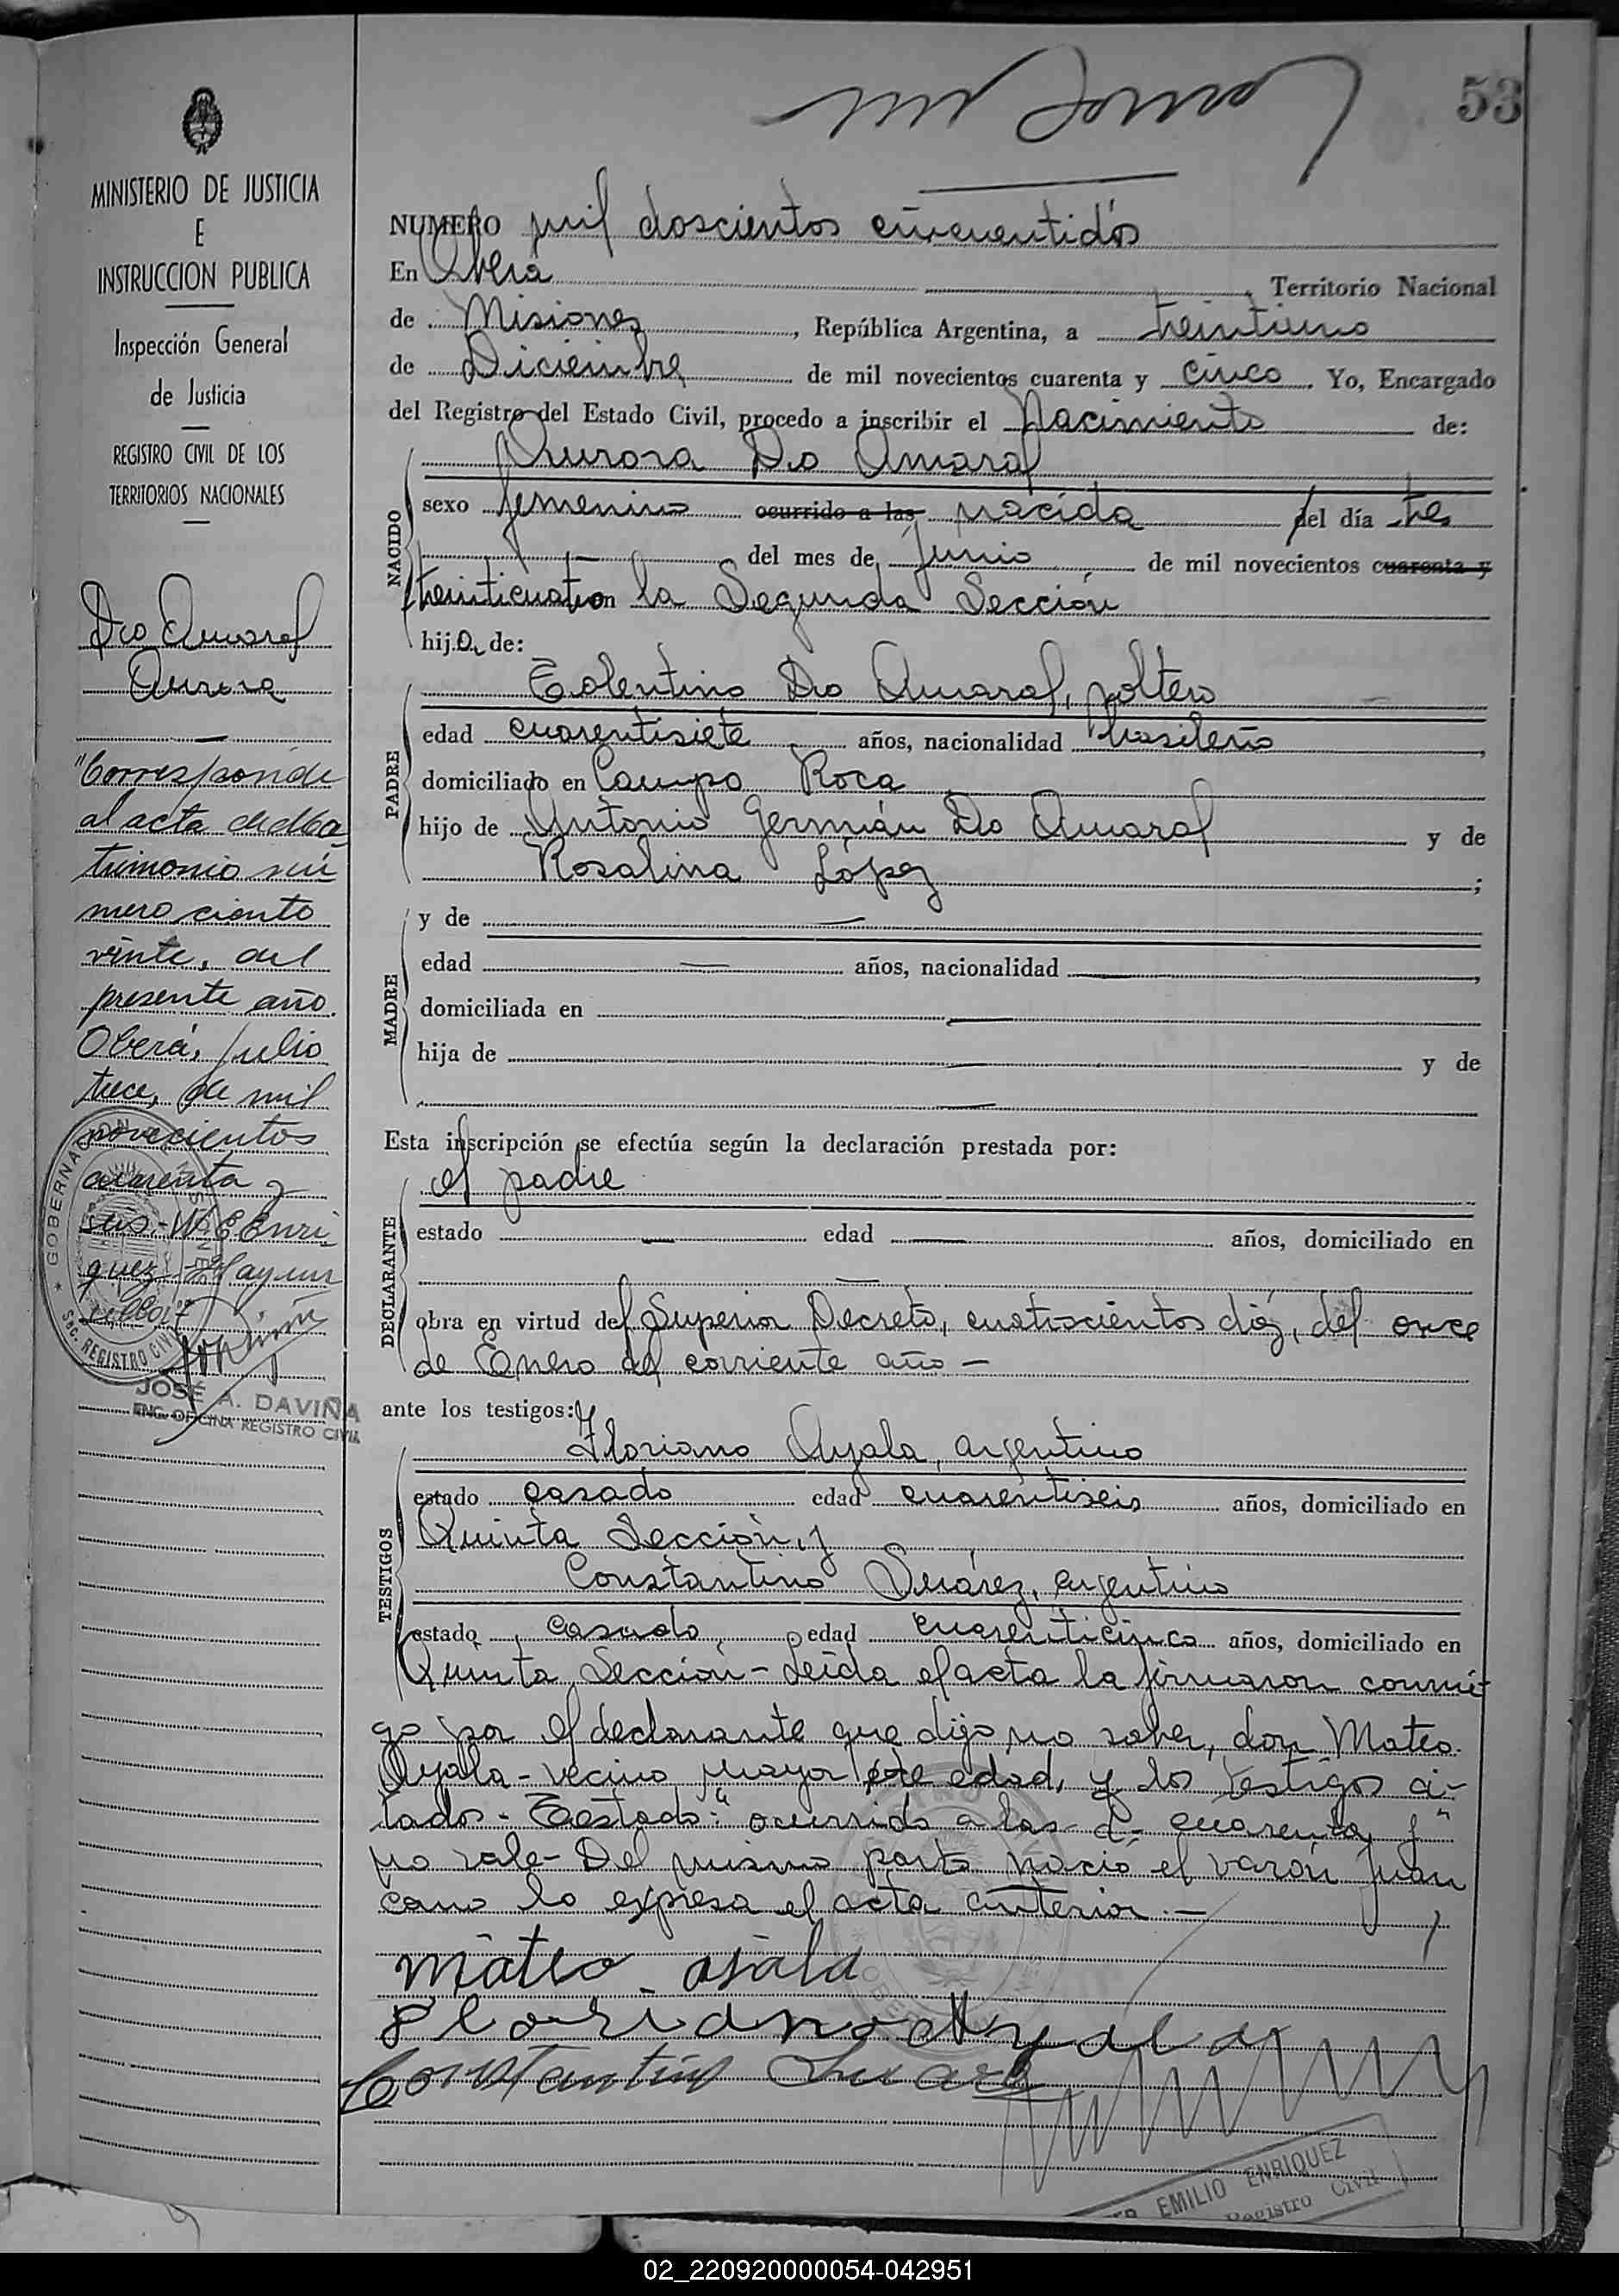 53
MINISTERIO DE JUSTICIA
E
INSTRUCCION PUBLICA
Inspección General
de Justicia
REGISTRO CIVIL DE LOS
TERRITORIOS NACIONALES
Do Amaral
Aurora
"Corresponde
al acta de Ma
trimonio nú
mero ciento
veinte, del
presente año.
Oberá, Julio
trece, de mil
novecientos
cuarenta y
seis.- W. E. Enri-
quez Hay un
sello"
GOBERNACION MISIONES
SEC. REGISTRO CIVIL
JOSÉ A. DAVIÑA
ENC. OFICINA REGISTRO CIVIL
NUMERO mil doscientos cincuentidós
En Oberá, Territorio Nacional
de Misiones, República Argentina, a treintiuno
de Diciembre de mil novecientos cuarenta y cinco. Yo, Encargado
del Registro del Estado Civil, procedo a inscribir el Nacimiento de:
Aurora Do Amaral
NACIDO
sexo femenino ocurrido a las nacida del día tres
del mes de Junio de mil novecientos cuarenta y
treinticuatro en la Segunda Sección
hija de:
PADRE
Tolentino Do Amaral, soltero
edad cuarentisiete años, nacionalidad brasileño,
domiciliado en Campo Roca
hijo de Antonio Germán Do Amaral y de
Rosalina López;
MADRE
y de
edad años, nacionalidad,
domiciliada en
hija de y de
Esta inscripción se efectúa según la declaración prestada por:
DECLARANTE
el padre
estado edad años, domiciliado en
obra en virtud del Superior Decreto, cuatrocientos diez, del once
de Enero del corriente año -
ante los testigos:
TESTIGOS
Floriano Ayala, argentino
estado casado edad cuarentiseis años, domiciliado en
Quinta Sección, y
Constantino Suárez, argentino
estado casado edad cuarenticinco años, domiciliado en
Quinta Sección - Leída el acta la firmaron conmi-
go por el declarante que dijo no saber, don Mateo
Ayala - vecino mayor de edad, y los testigos ci-
tados - Testado: "ocurrido a las - d - cuarenta y"
no vale - Del mismo parto nació el varón Juan
como lo expresa el acta anterior. -
mateo ajala
Floriano Ayala
Constantino Suarez
EMILIO ENRIQUEZ
Registro Civil
02_220920000054-042951